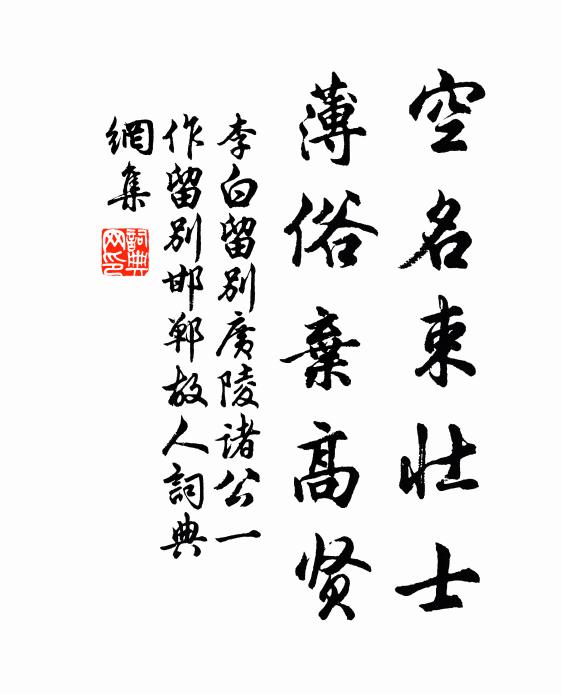 空名束壮士
薄俗棄高贤
李白留别廣陵诸公一
作留别邯郸故人詞典
網集
詞典网印